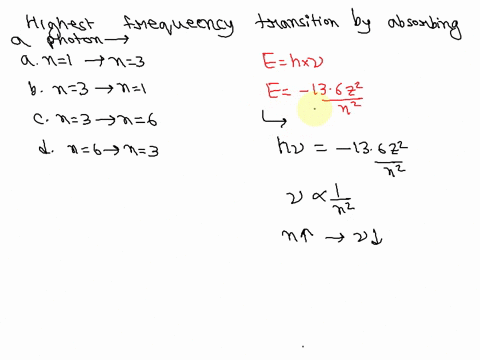 Highest frequeency transition by absorbing
a photon →
a. n=1 → n=3
b. n=3 → n=1
c. n=3 → n=6
d. n=6 → n=3
E = h×ν
E = -13.6z²/n²
↳
hν = -13.6z²/n²
ν ∝ 1/n²
n↑ → ν↓